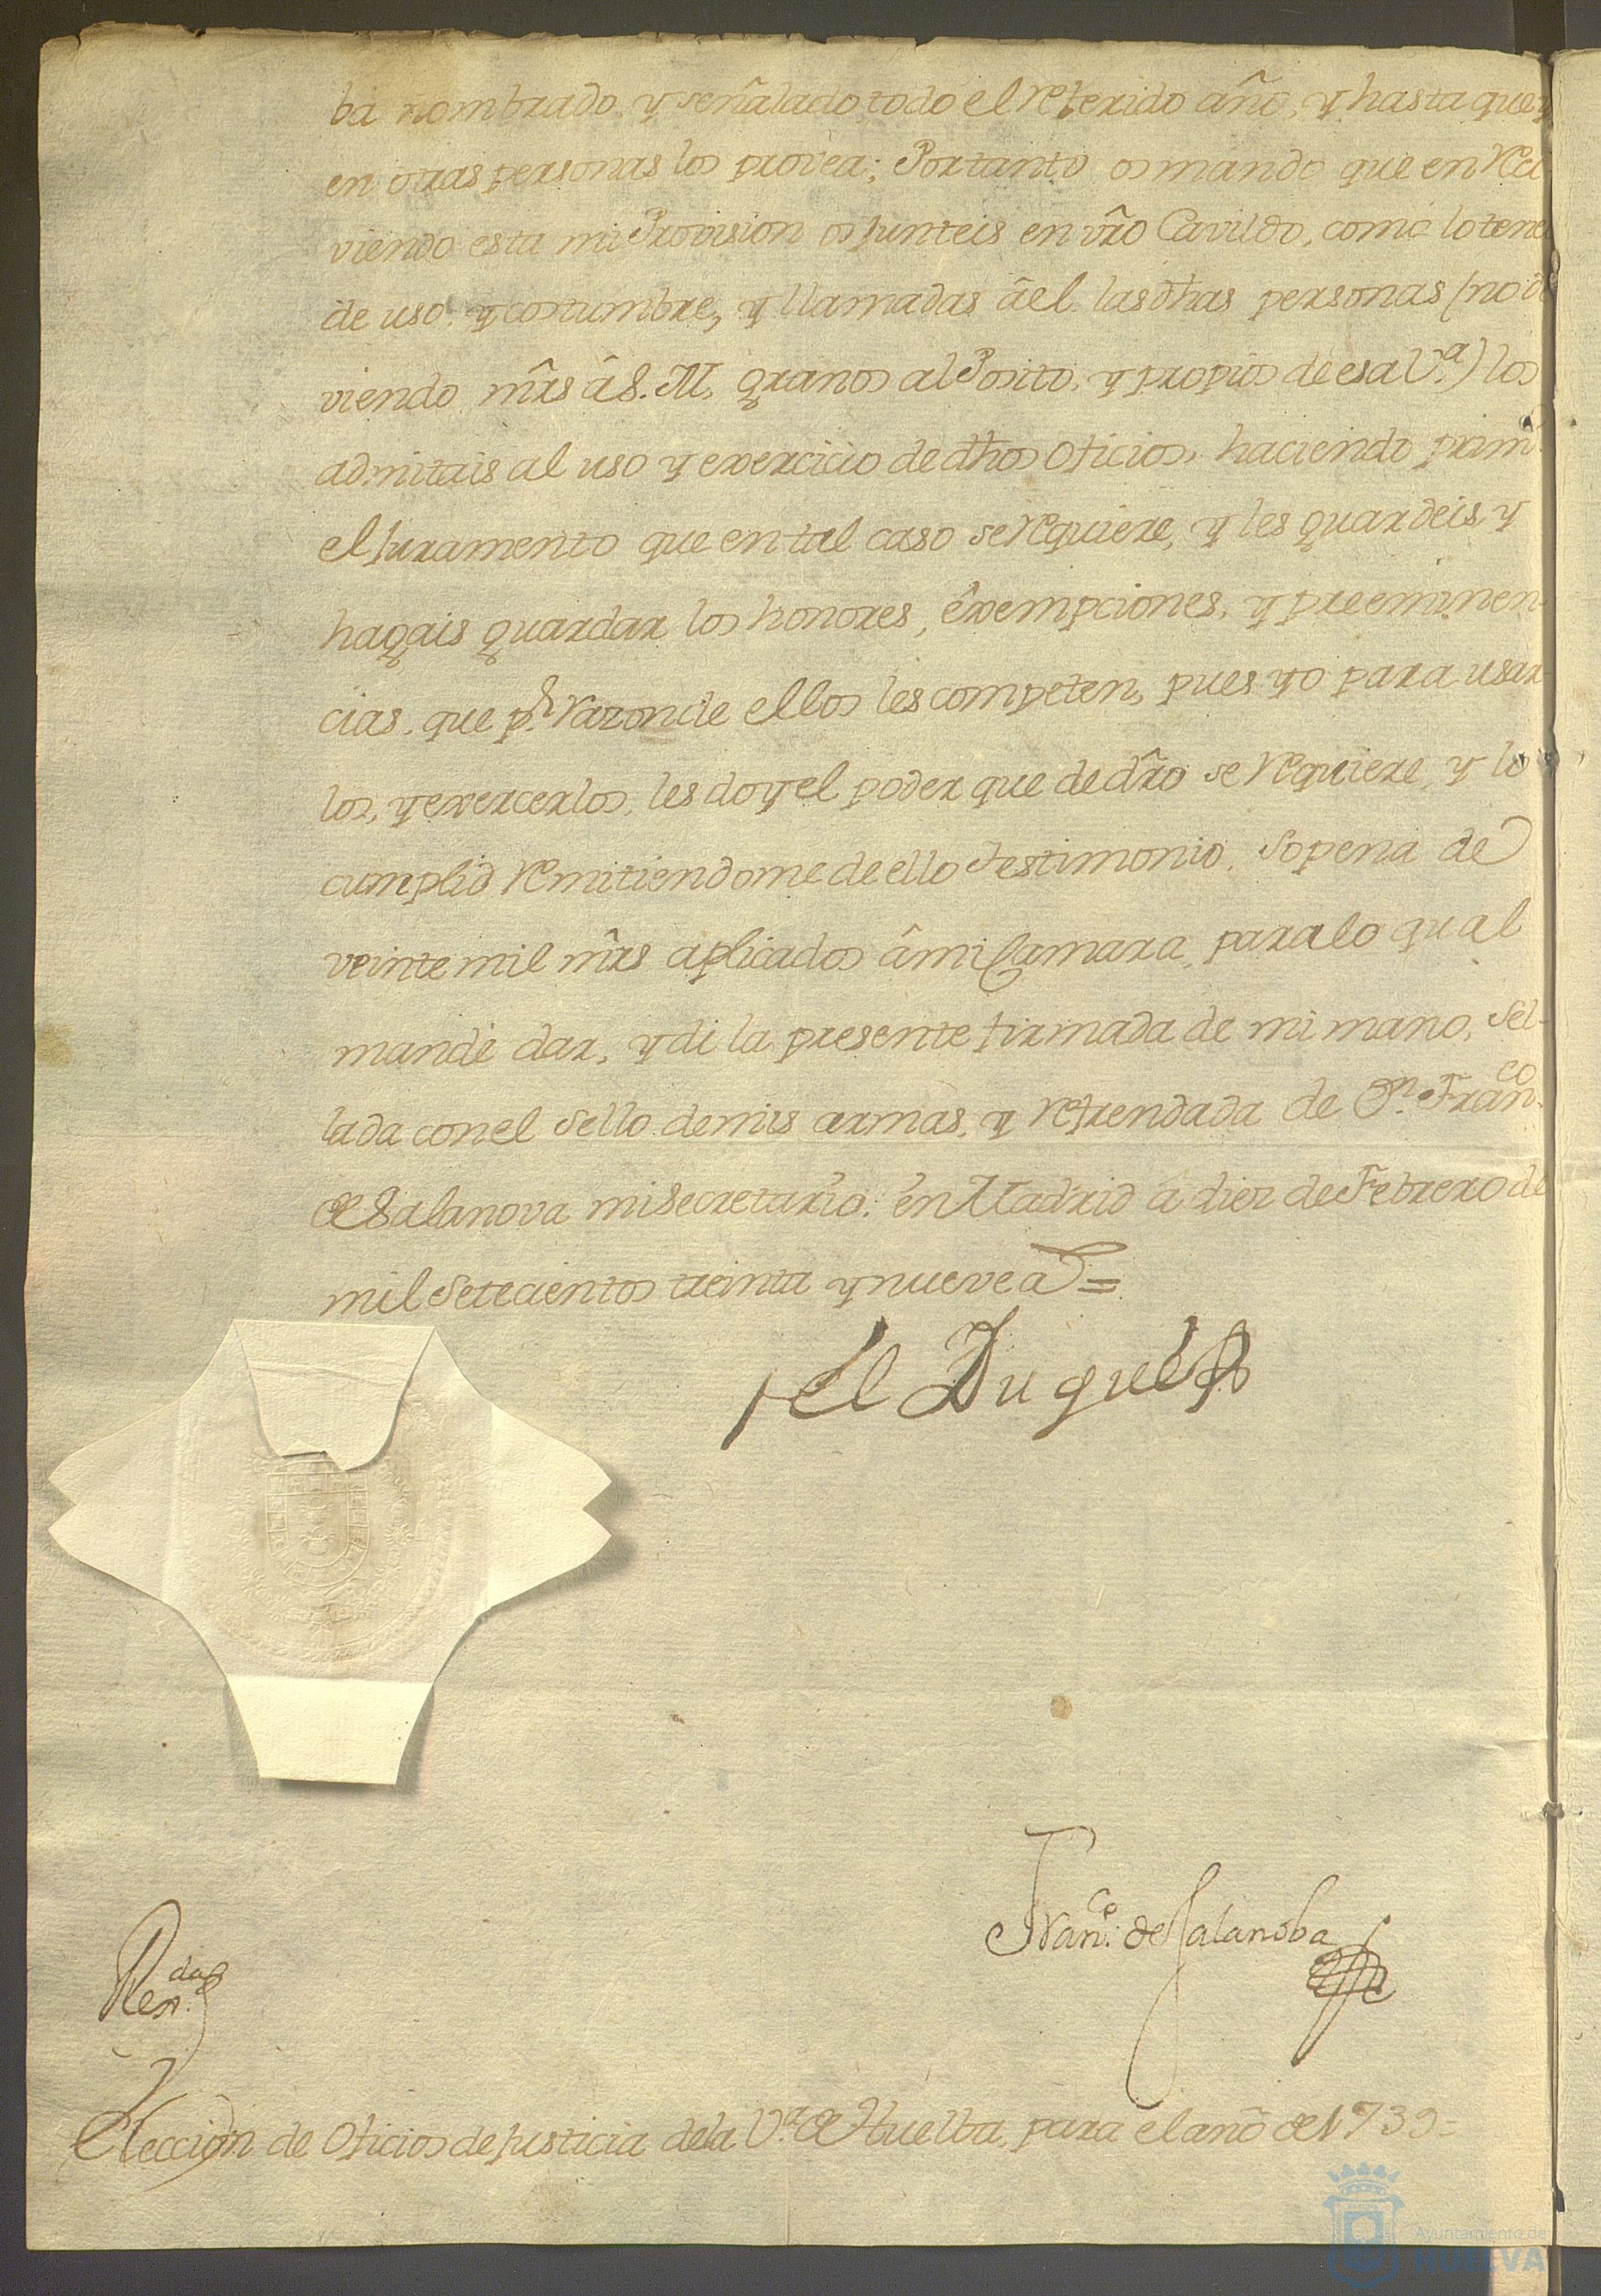 ba nombrado, y señalado todo el referido año, y hasta que y
en otras personas los provea; Portanto os mando que en reci
viendo esta mi Provision os junteis en vr̃o Cavildo, como lo tene
de uso, y costumbre, y llamadas â el las dhas personas (no de
viendo mr̃s â S. M. granos al Posito, y propios de esa V.ª) los
admitais al uso y exercicio de dhos oficios, haciendo prim
el juramento que en tal caso se requiere, y les guardeis, y
hagais guardar los honores, êxempciones, y preeminen-
cias, que p.r razon de ellos les competen, pues yo para usar
los, y exercerlos, les doy el poder que de dr̃o se requiere, y lo
cumplid remitiendome de ello testimonio, sopena de
veinte mil mr̃s aplicados â mi Camara, para lo qual
mandé dar, y di la presente firmada de mi mano, sel-
lada con el sello de mis armas, y refrendada de D.n Fran.co
de Salanova mi Secretario: en Madrid â diez de Febrero de
mil setecientos treinta y nueve a.s =
el Duque
Fran.co de Salanoba
Ren.da
Eleccion de Oficios de justicia de la V.ª de Huelba, para el año de 1739=
Ayuntamiento de
HUELVA